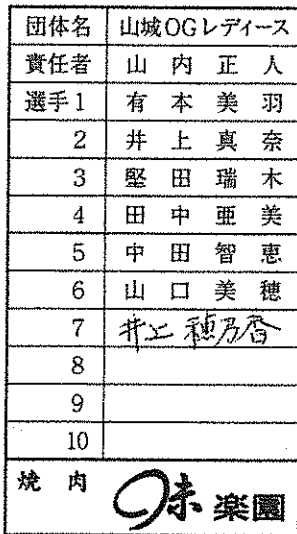 団体名 山城OGレディース
責任者 山内正人
選手1 有本美羽
2 井上真奈
3 堅田瑞木
4 田中亜美
5 中田智恵
6 山口美穂
7 井上穂乃香
8
9
10
焼肉 味楽園